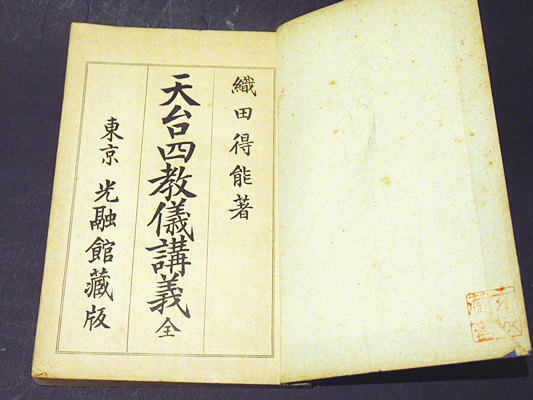 織田得能著
天台四教儀講義全
東京 光融館藏版